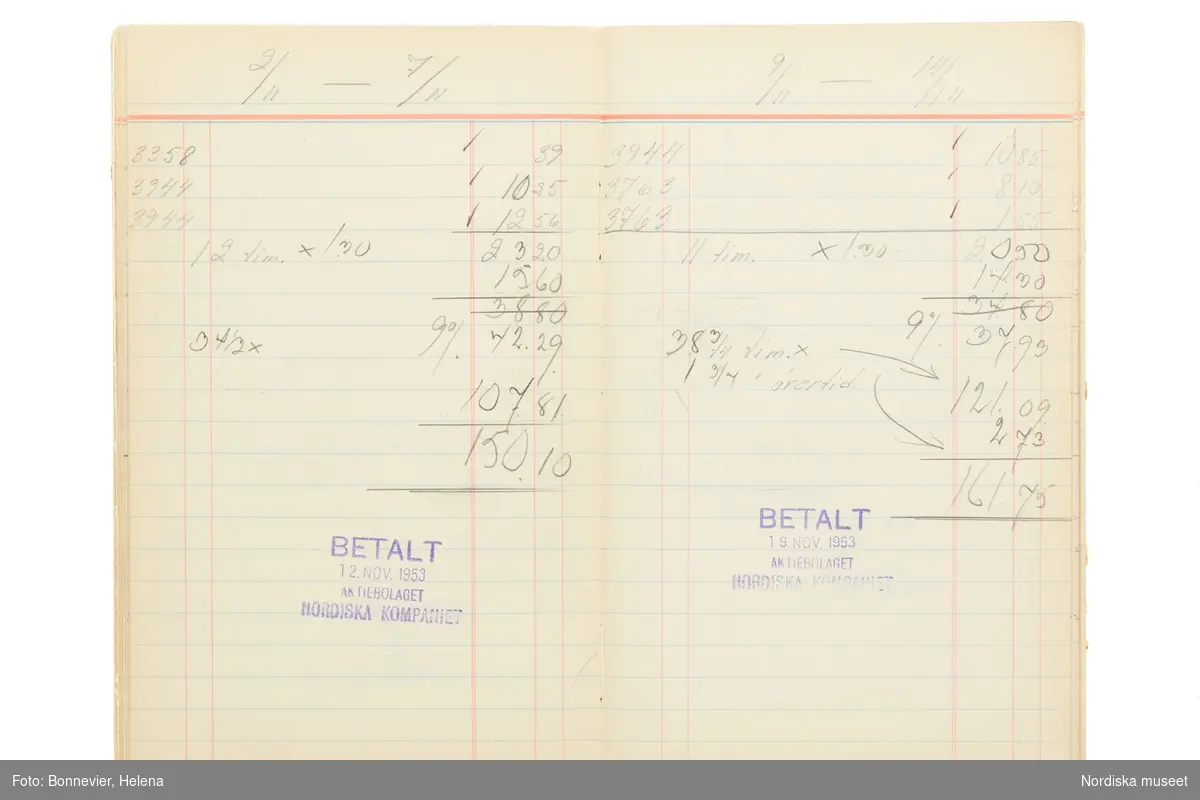 2/11 — 7/11
3358 1 39
3944 1 10 25
3944 1 12 56
12 tim. x 1.30 23 20
15 60
38 80
9%. 42.29
34 1/2 x
107.81
150.10
BETALT
12. NOV. 1953
AKTIEBOLAGET
NORDISKA KOMPANIET
9/11 — 14/11
3944 1 10 85
3763 1 8 10
3763 1 1 55
11 tim. x 1.30 20 50
14.30
34.80
9%. 37.93
38 3/4 tim. x
1 3/4 " övertid.
121.09
2 73
161.75
BETALT
19. NOV. 1953
AKTIEBOLAGET
NORDISKA KOMPANIET
Foto: Bonnevier, Helena
Nordiska museet